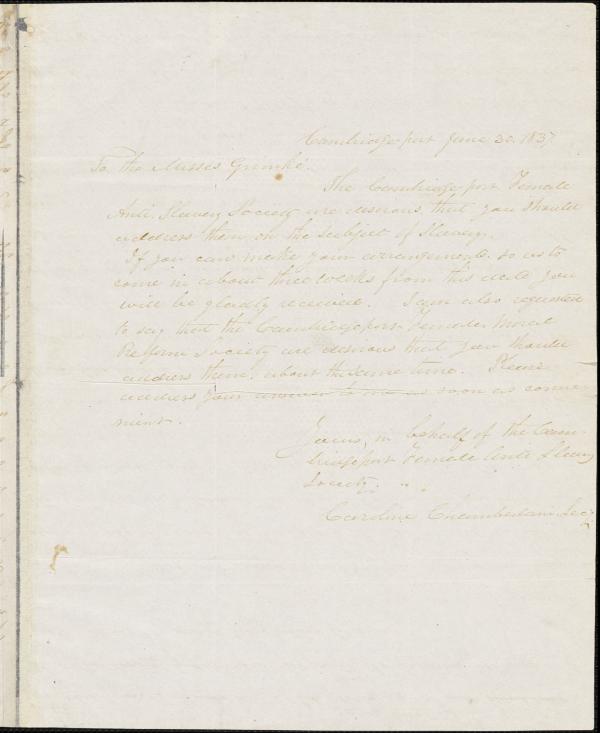 Cambridgeport June 30. 1837
To the Misses Grimké.
The Cambridgeport Female
Anti Slavery Society are desirous, that you should
address them on the subject of Slavery.
If you can make your arrangements so as to
come in about three weeks from this date you
will be gladly received. I am also requested
to say that the Cambridgeport Female Moral
Reform Society are desirous that you should
address them, about the same time. Please
address your answer to me as soon as conve-
nient.
Yours, in behalf of the Cam-
bridgeport Female Anti Slavery
Society.
Caroline Chamberlain Sec.